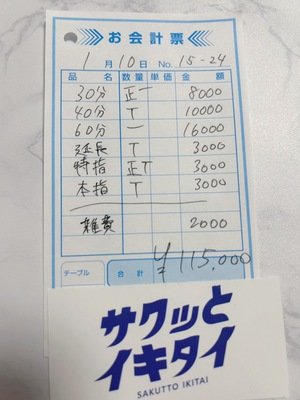 お会計票
1月10日 No. 15-24
品名 数量 単価 金額
30分 正一 8000
40分 T 10000
60分 一 16000
延長 T 3000
特指 正T 3000
本指 T 3000
雑費 2000
テーブル 合計 ¥115,000
サクッと
イキタイ
SAKUTTO IKITAI